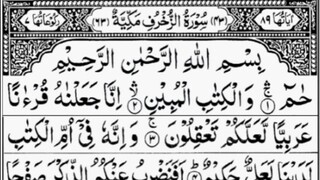 اٰيَاتُهَا ٨٩ (٤٣) سُوْرَةُ الزُّخْرُفِ مَكِّيَّةٌ (٦٣) رُكُوْعَاتُهَا ٧
بِسْمِ اللّٰهِ الرَّحْمٰنِ الرَّحِيْمِ
حٰمٓ ۚ‏﴿۱﴾ وَالْكِتٰبِ الْمُبِيْنِ ۙ‏﴿۲﴾ اِنَّا جَعَلْنٰهُ قُرْءٰنًا
عَرَبِيًّا لَّعَلَّكُمْ تَعْقِلُوْنَ ۚ‏﴿۳﴾ وَاِنَّهٗ فِىْۤ اُمِّ الْكِتٰبِ
لَدَيْنَا لَعَلِىٌّ حَكِيْمٌ ؕ‏﴿۴﴾ اَفَنَضْرِبُ عَنْكُمُ الذِّكْرَ صَفْحًا